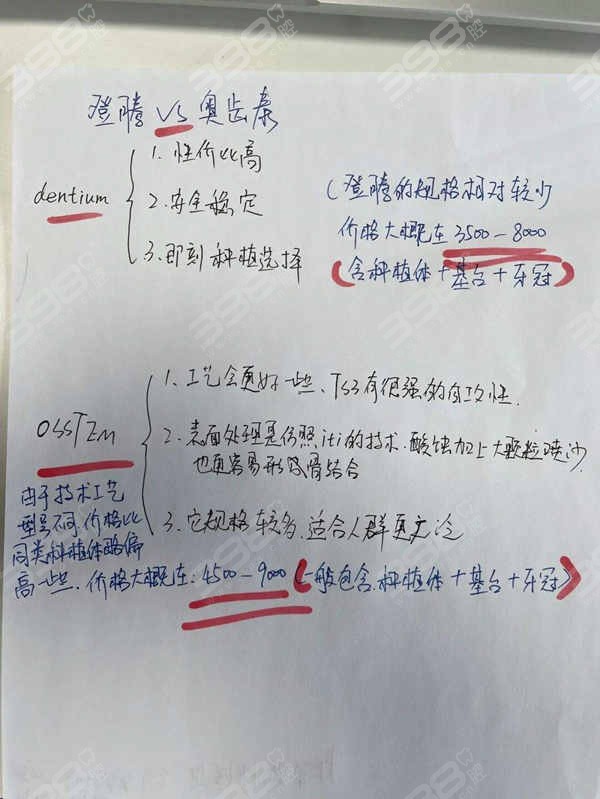 登腾 VS 奥齿泰
dentium
1. 性价比高
2. 安全稳定
3. 即刻种植选择
(登腾的规格相对较少
价格大概在 3500-8000
(含种植体+基台+牙冠)
OSSTEM
1. 工艺会更好一些、TS3有很强的自攻性.
2. 表面处理是仿照iti的技术.酸蚀加上大颗粒喷沙
也更容易形成骨结合
3. 它规格较多.适合人群更广泛
由于技术工艺
型号不同.价格比
同类种植体略偏
高一些.价格大概在:4500-9000(一般包含.种植体+基台+牙冠)